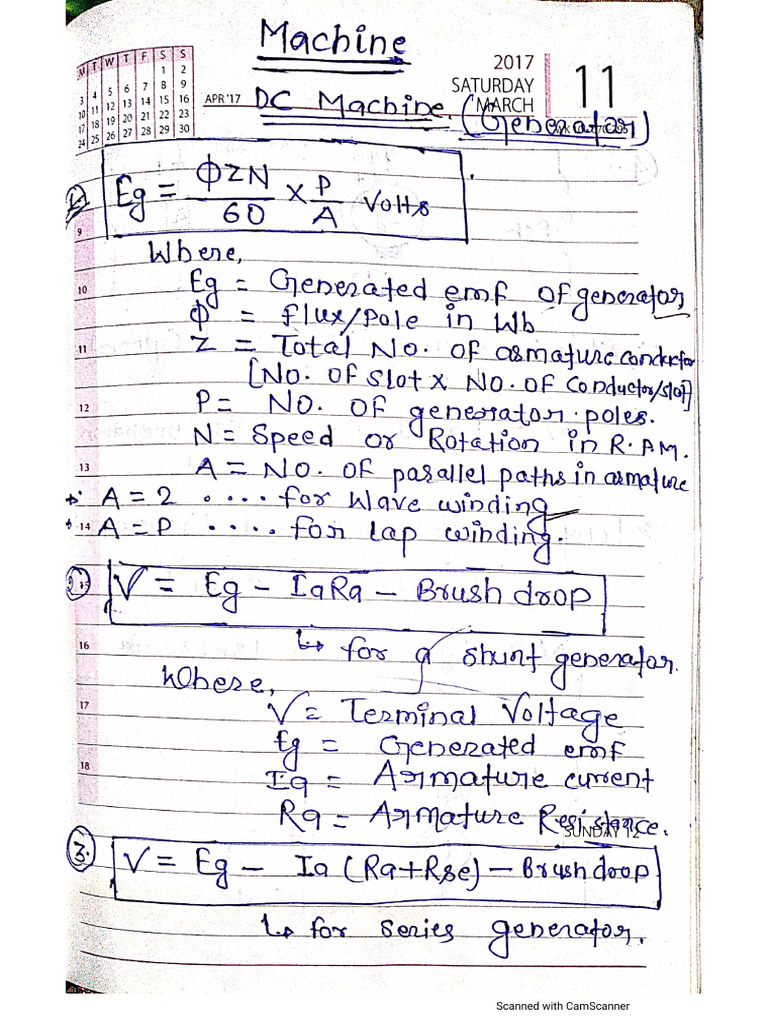 Machine
2017
SATURDAY
MARCH
11
M T W T F S S
1 2
3 4 5 6 7 8 9
10 11 12 13 14 15 16
17 18 19 20 21 22 23
24 25 26 27 28 29 30
APR '17
DC Machine. (Generator)
1. Eg = ΦZN/60 × P/A Volts
9
Where,
10 Eg = Generated emf of generator,
Φ = flux/Pole in Wb
11 Z = Total No. of armature conductor
[No. of Slot × No. of Conductor/slot]
12 P = No. of generator poles.
N = Speed or Rotation in R.P.M.
13 A = No. of parallel paths in armature
A = 2 .... for Wave winding
14 A = P .... for lap winding.
2. V = Eg - IaRa - Brush drop
15
16 ↳ for a shunt generator.
Where,
17 V = Terminal Voltage
Eg = Generated emf
18 Ia = Armature current
Ra = Armature Resistance.
SUNDAY 12
3. V = Eg - Ia (Ra+Rse) - Brush drop
↳ for series generator.
Scanned with CamScanner